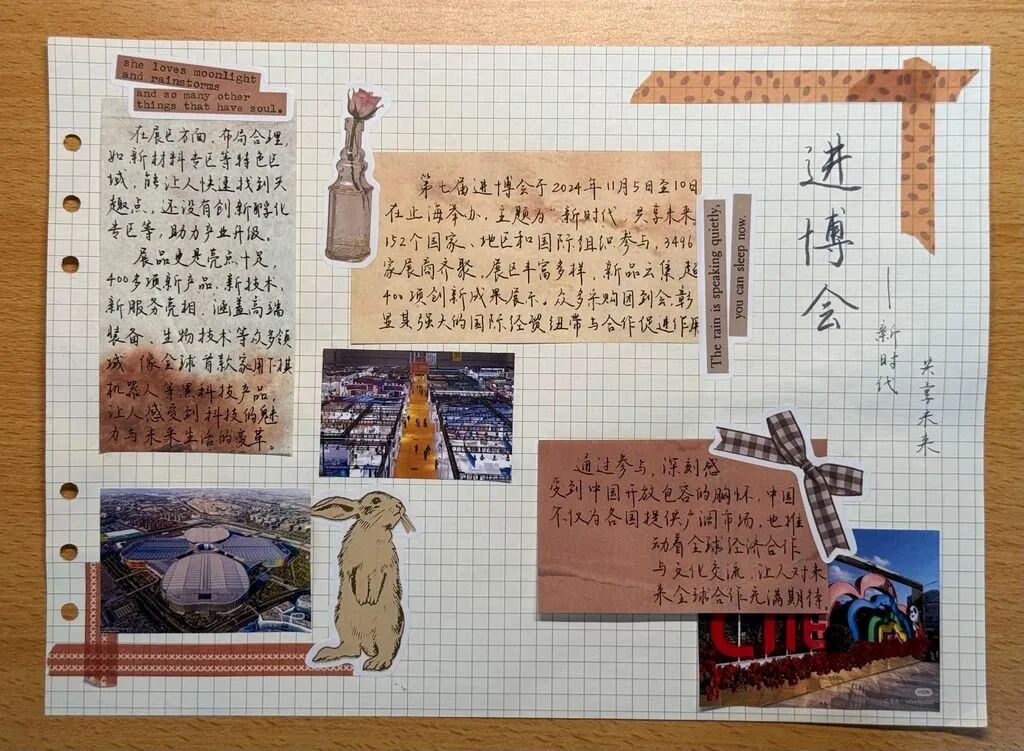 she loves moonlight
and rainstorms
and so many other
things that have soul.
在展区方面，布局合理，
如新材料专区等特色区
域，能让人快速找到兴
趣点，还没有创新孵化
专区等，助力产业升级。
展品更是亮点十足，
400多项新产品、新技术、
新服务亮相，涵盖高端
装备、生物技术等众多领
域，像全球首款家用下棋
机器人等黑科技产品，
让人感受到科技的魅
力与未来生活的变革。
第七届进博会于2024年11月5日至10日
在上海举办，主题为"新时代，共享未来。
152个国家、地区和国际组织参与，3496
家展商齐聚，展区丰富多样，新品云集，超
400项创新成果展示。众多采购团到会，彰
显其强大的国际经贸纽带与合作促进作用
The rain is speaking quietly,
you can sleep now.
进博会
——新时代
共享未来
通过参与，深刻感
受到中国开放包容的胸怀，中国
不仅为各国提供广阔市场，也推
动着全球经济合作
与文化交流，让人对未
来全球合作充满期待。
CIIE
小红书